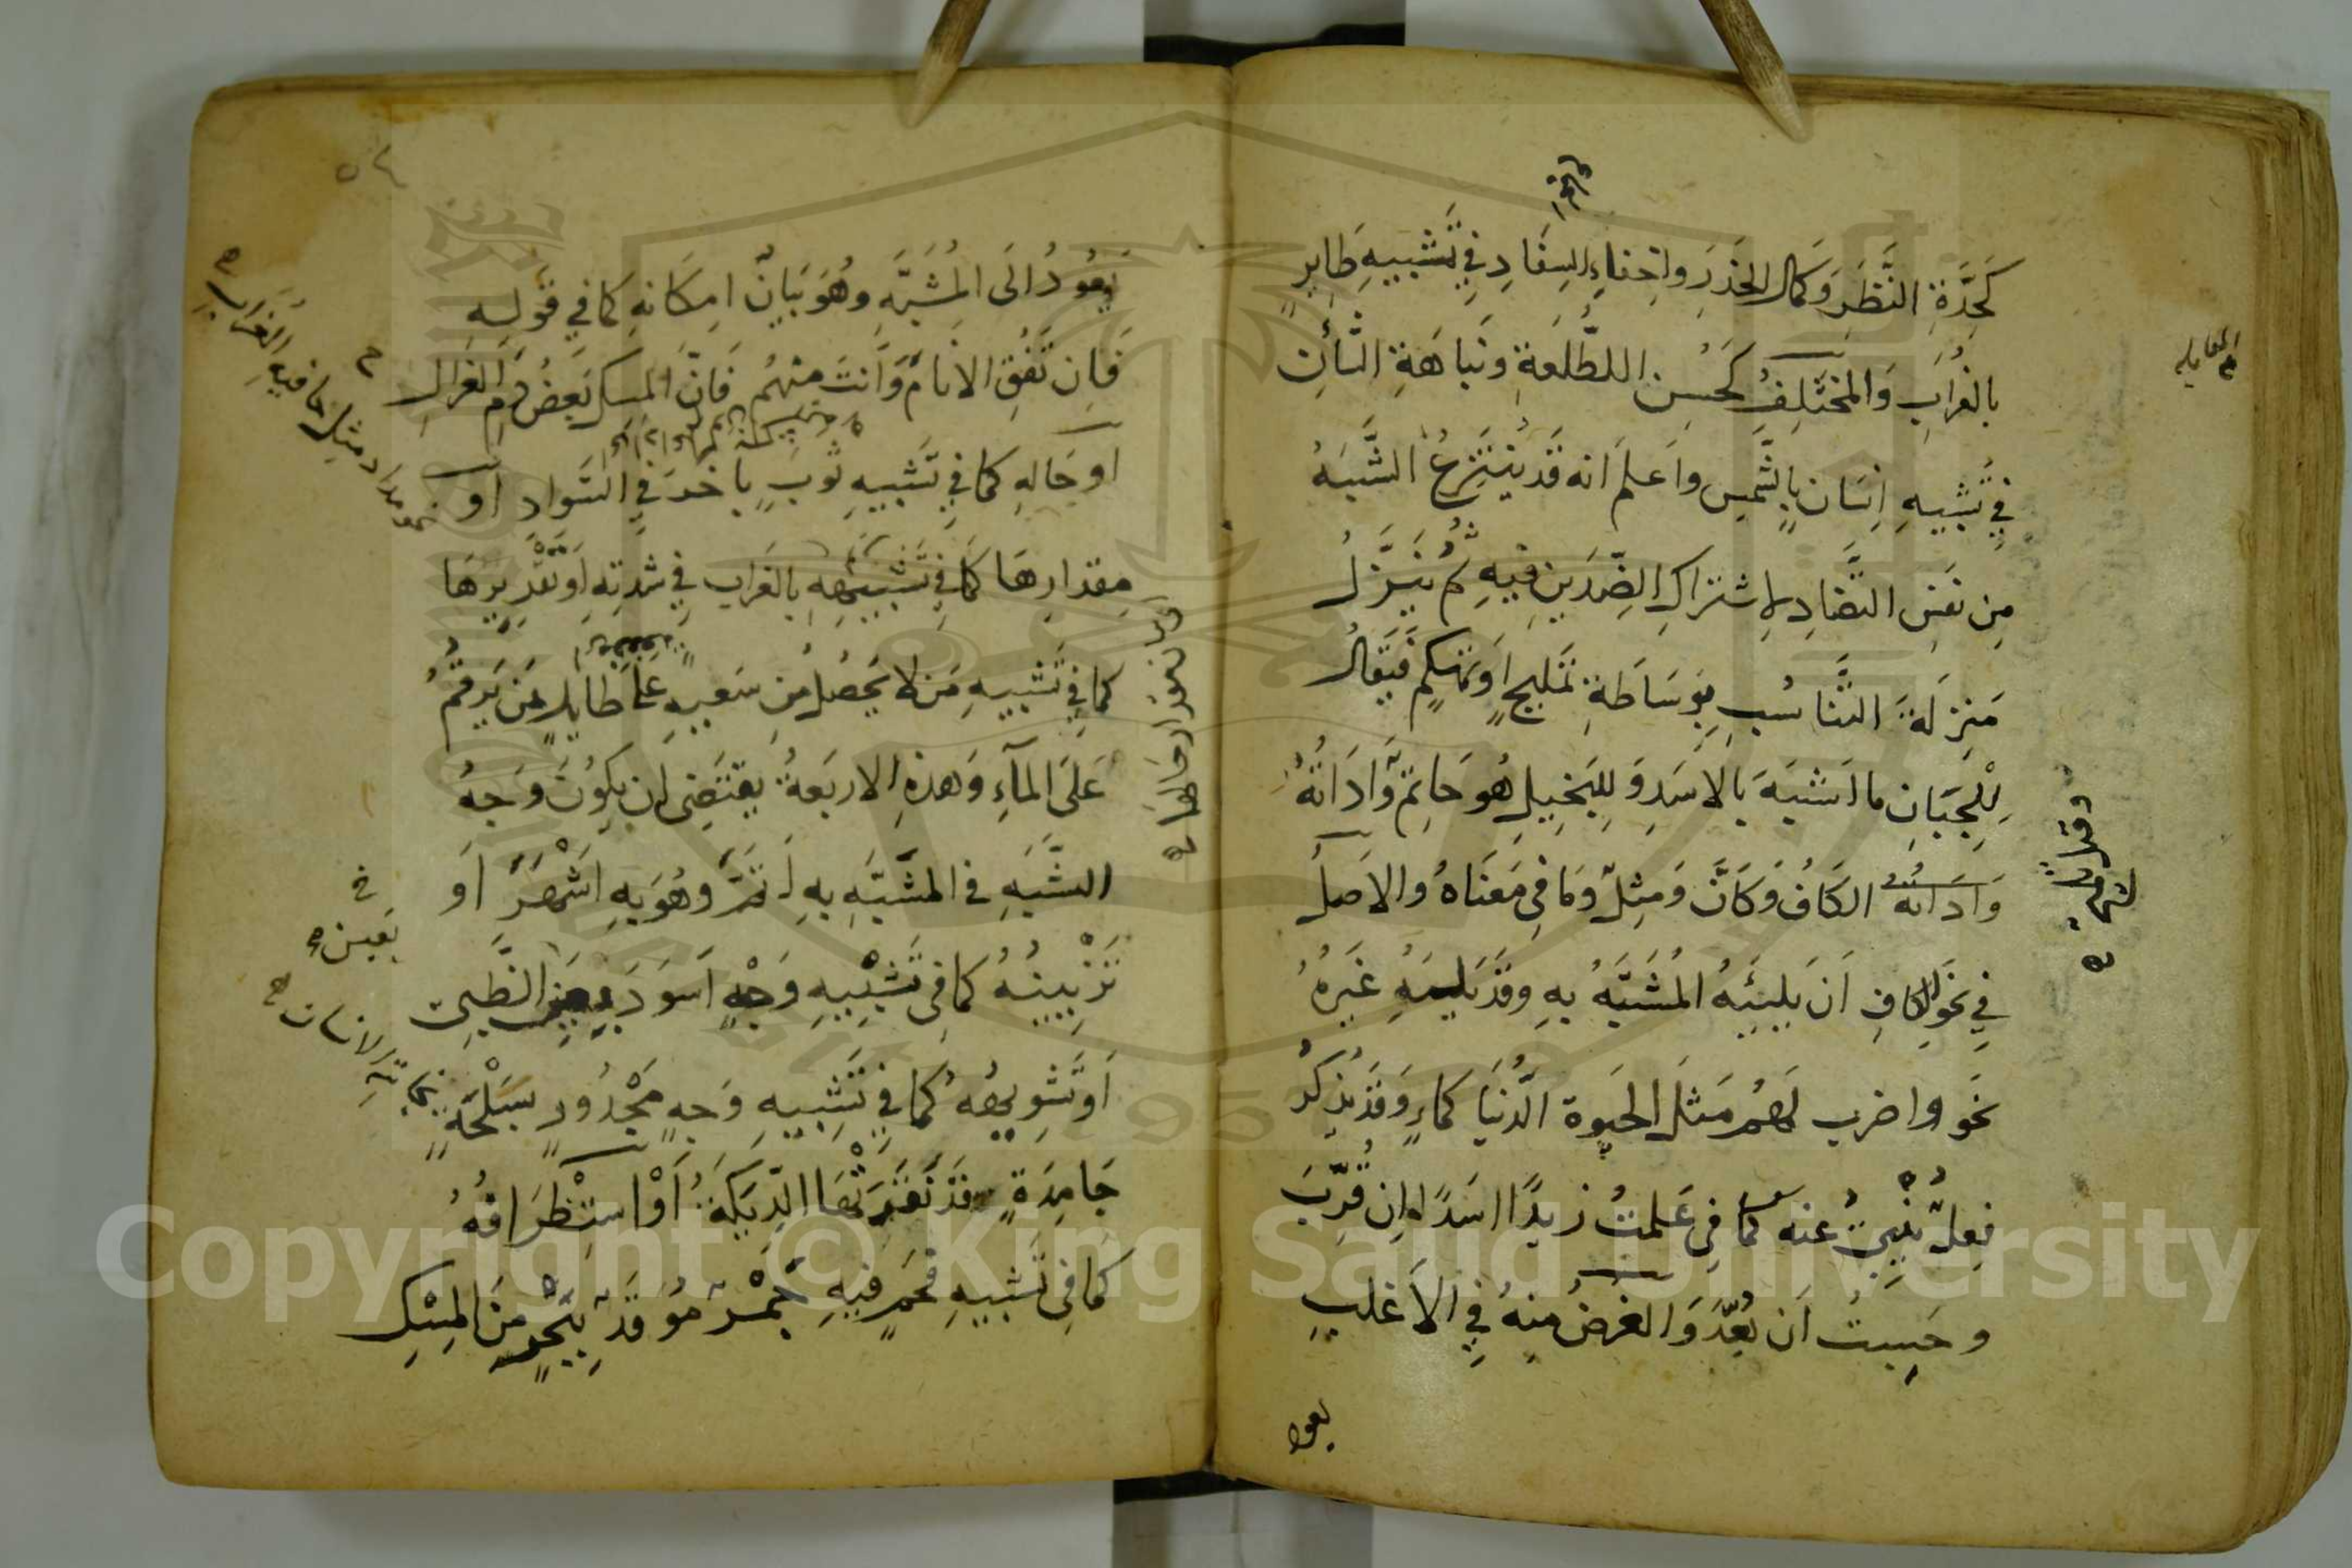 كَحِدَّةِ النَّظَرِ وَكَمَالِ الحَذَرِ وَاِخْفَاءِ السِفَادِ فِي تَشْبِيهِ طَايرٍ
بالغُرَابِ وَالمُخْتَلِفُ كَحُسنِ الطَّلعَةِ وَنَبَاهَةِ الشَّأْنِ
فِي تَشْبِيهِ اِنسَانٍ بِالشَّمسِ واَعلم اَنه قَد يُنتَزَعُ الشَّبَهُ
مِن نَفسِ التَّضَادِ لاِشتراكِ الضِّدَّينِ فيهِ ثُمَّ يُنَزَّلُ
مَنزِلَةَ التَّنَاسُبِ بِوَسَاطَةِ تَمليحٍ اَو تَهَكُّمٍ فَيُقَالُ
لِلْجَبَانِ ما اَشبَهَهُ بالاَسَدِ وَ لِلبَخِيلِ هُوَ حَاتِمٌ وَّاَدَاتُهُ
وَاَدَاتُهُ الكَافُ وَكَاَنَّ وَمِثلُ وَمَا فِي مَعنَاهُ والاَصلُ
فِي نَحوِ الكافِ اَن يَلِيَهُ المُشَبَّهُ بِهِ وقَد يَليهِ غَيرُهُ
نَحوُ واضرب لَهُم مَثَلَ الحَيوة الدُّنيَا كَماءٍ وَقَد يُذكَرُ
فِعلٌ يُنْبِئُ عنه كَمَا فِي عَلمتُ زيدًا اسَدًا اِن قُرِّبَ
و حَسِبتُ اَن بُعِّدَ وَالغَرَضُ مِنهُ فِي الاَغلبِ
يعود
المقابله
يَعُودُ اِلَى المُشَبَّهِ وهُوَ بَيَانُ اِمكَانهِ كمَا في قَولِهِ
فَاِن تَفُقِ الاَنَامَ وَاَنتَ مِنهُم فَاِنَّ المِسكَ بَعضُ دَمِ الغَزالِ
اَو حَالِهِ كمَا فِي تَشبِيهِ ثَوبٍ بِاٰخَرَ فِي السَّوادِ اَو
مِقدَارِهَا كَمَا فِي تَشبِيهِهِ بالغُرابِ فِي شِدتِهِ اَو تَقْرِيرِهَا
كمَا فِي تَشبِيهِ مَن لا يَحصُلُ مِن سَعيِهِ عَلىٰ طَايلٍ بمَن يَرقُمُ
عَلَى المَآءِ وَهذِهِ الاَربَعةُ يَقتَضِى اَن يكُونَ وَجهُ
الشَّبَهِ في المُشَبَّهِ بِهِ اَتَمَّ وهُوَ بِهِ اَشْهَرُ اَو
تَزْيِينُهُ كمَا فِي تَشْبِيهِ وَجْهٍ اَسوَدَ الظَّبيِ
اَو تَشوِيهُهُ كمَا فِي تَشبِيهِ وَجهٍ مَجْدُورٍ بِسَلْحَةٍ
جَامِدَةٍ قَد نَقَرَتْهَا الدِّيَكَةُ اَوْ اسْتِطْرَافُهُ
كمَا فِي تَشبيهِ فَحمٍ فيهِ جَمْرٌ مُوقَدٌ بِبَحرٍ مِنَ المِسْكِ
الغراب
الانسان
Copyright © King Saud University